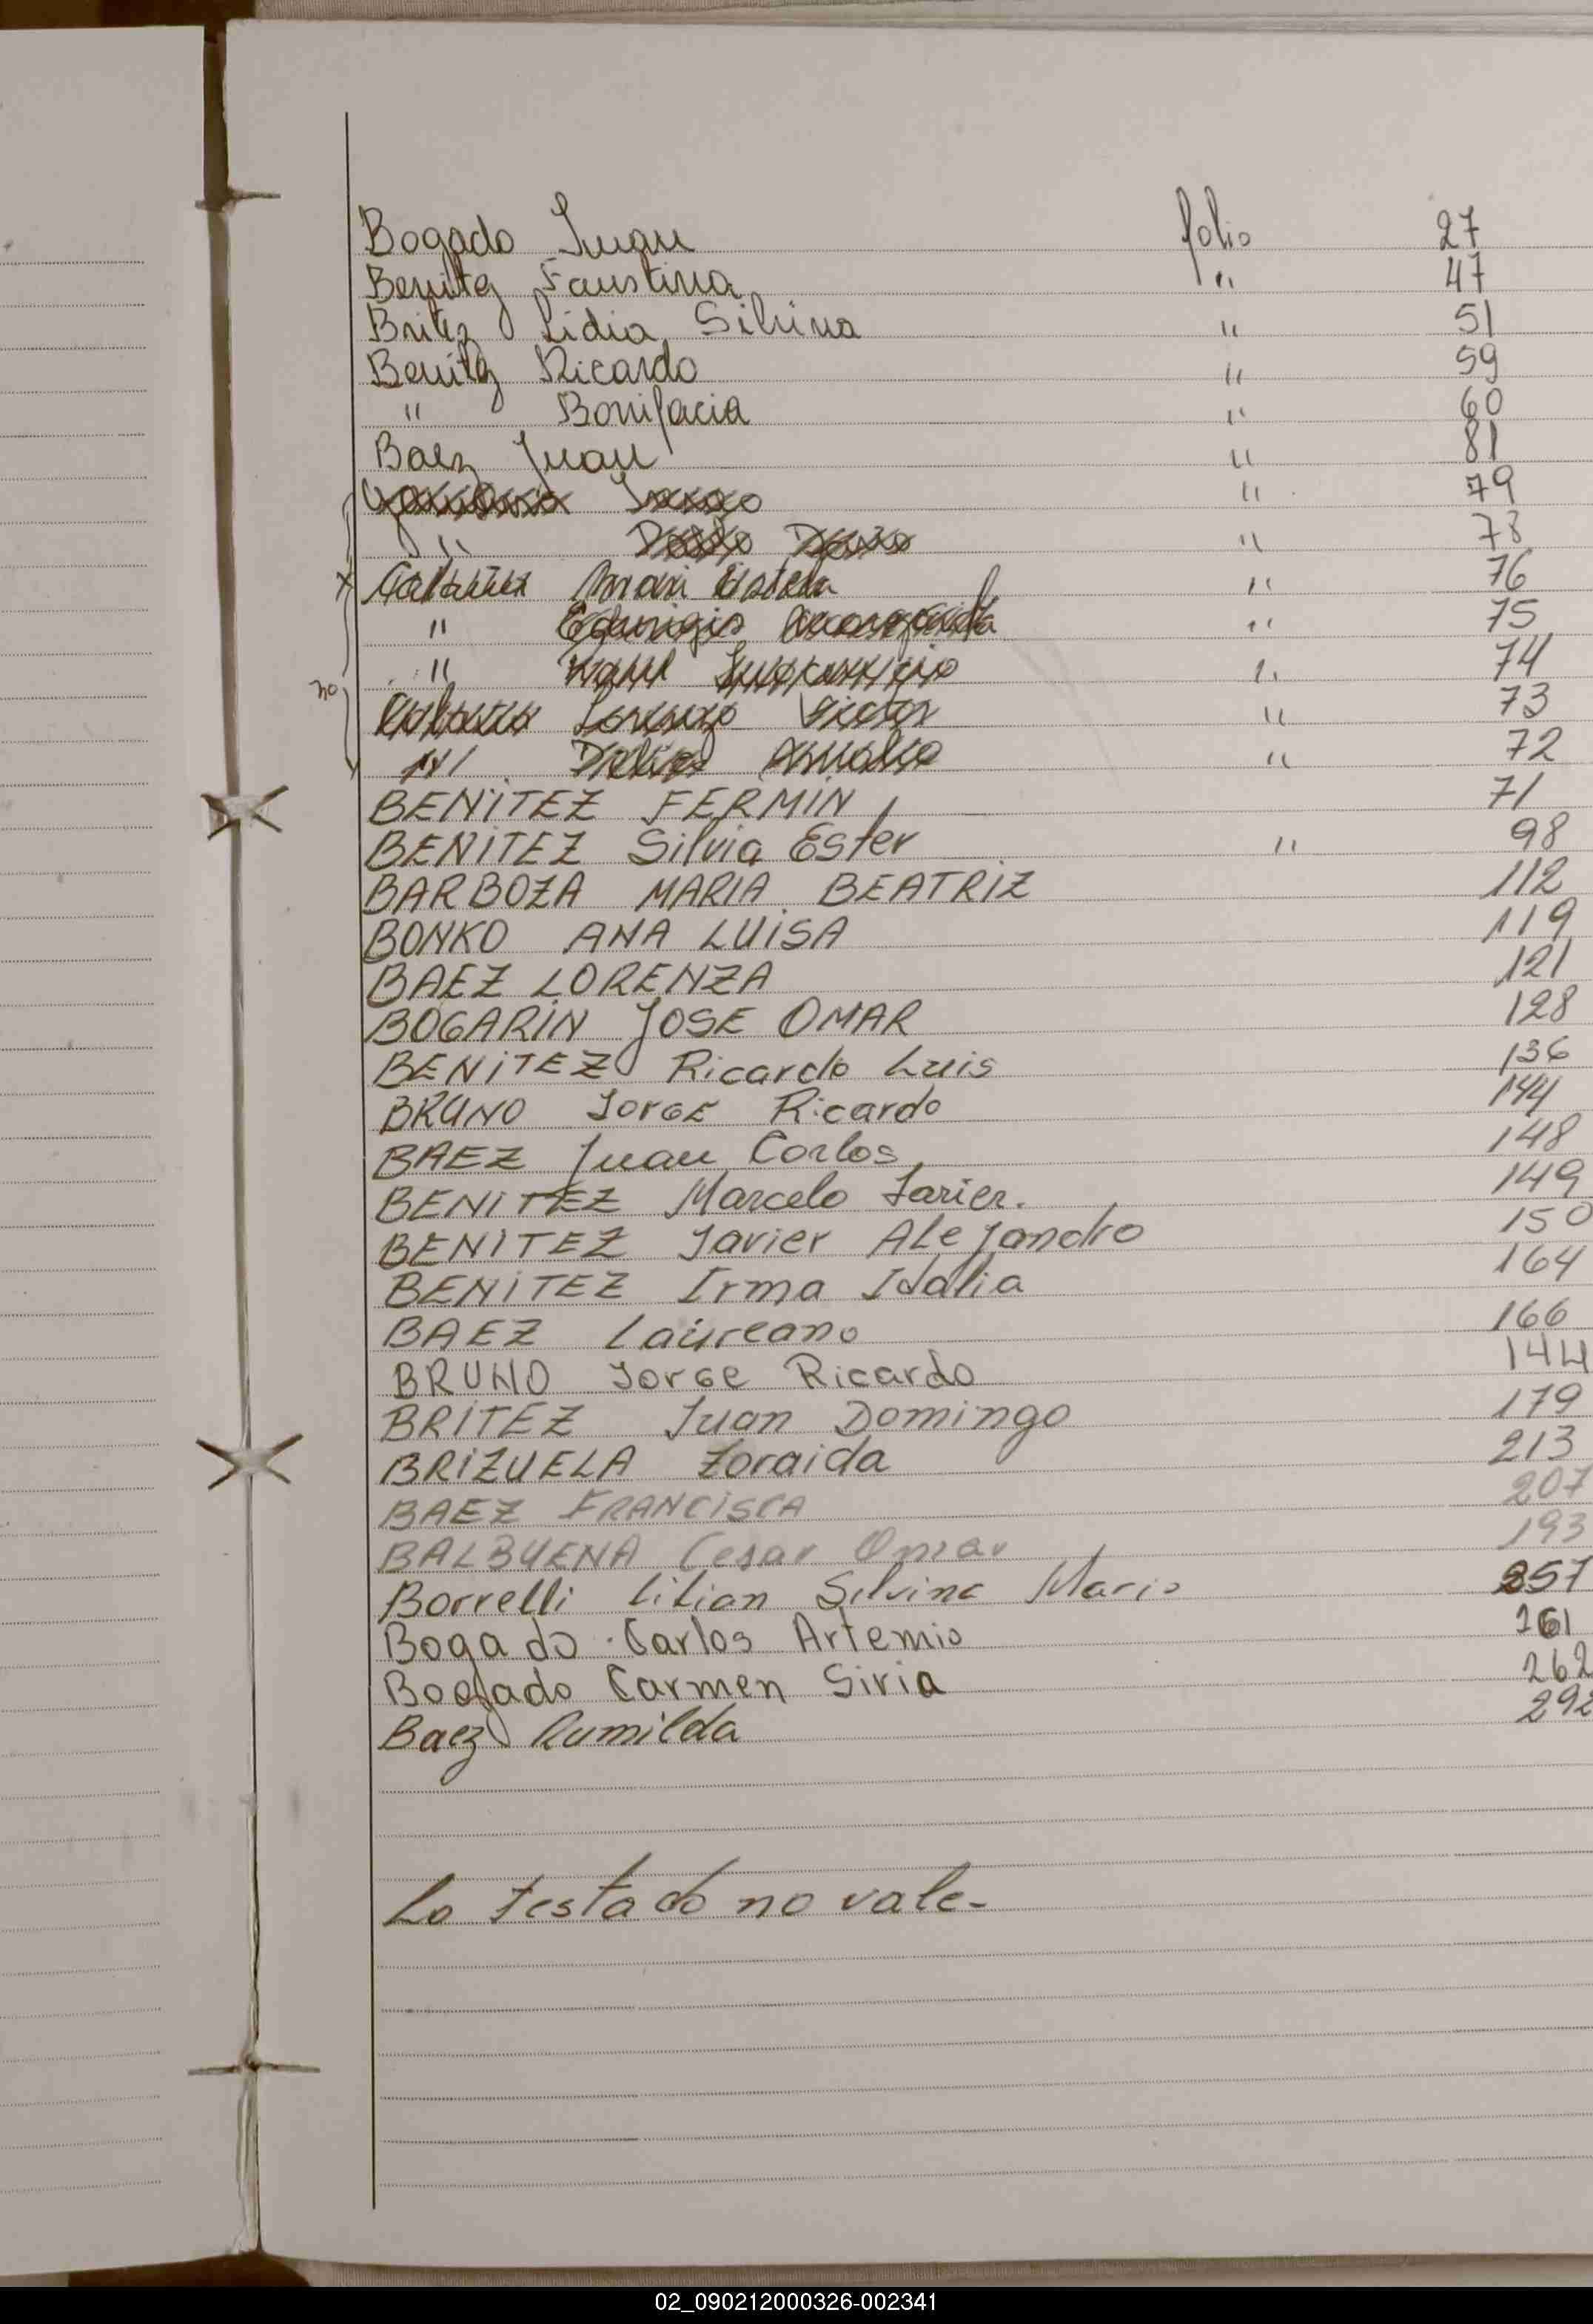 Bogado Juan folio 27
Benitez Faustina " 47
Britez Lidia Silvina " 51
Benitez Ricardo " 59
" Bonifacia " 60
Baez Juan " 81
" 79
" " 78
" 76
" " 75
" " 74
no Lorenzo Victor " 73
" 72
BENITEZ FERMIN 71
BENITEZ Silvia Ester " 98
BARBOZA MARIA BEATRIZ 112
BONKO ANA LUISA 119
BAEZ LORENZA 121
BOGARIN JOSE OMAR 128
BENITEZ Ricardo Luis 136
BRUNO JorGE Ricardo 144
BAEZ Juan Carlos 148
BENITEZ Marcelo Javier. 149
BENITEZ Javier Alejandro 150
BENITEZ Irma Idalia 164
BAEZ Laureano 166
BRUNO Jorge Ricardo 144
BRITEZ Juan Domingo 179
BRIZUELA Zoraida 213
BAEZ FRANCISCA 207
BALBUENA Cesar Omar 193
Borrelli Lilian Silvina Maria 257
Bogado Carlos Artemio 261
Bogado Carmen Siria 262
Baez Rumilda 292
Lo testado no vale-
02_090212000326-002341